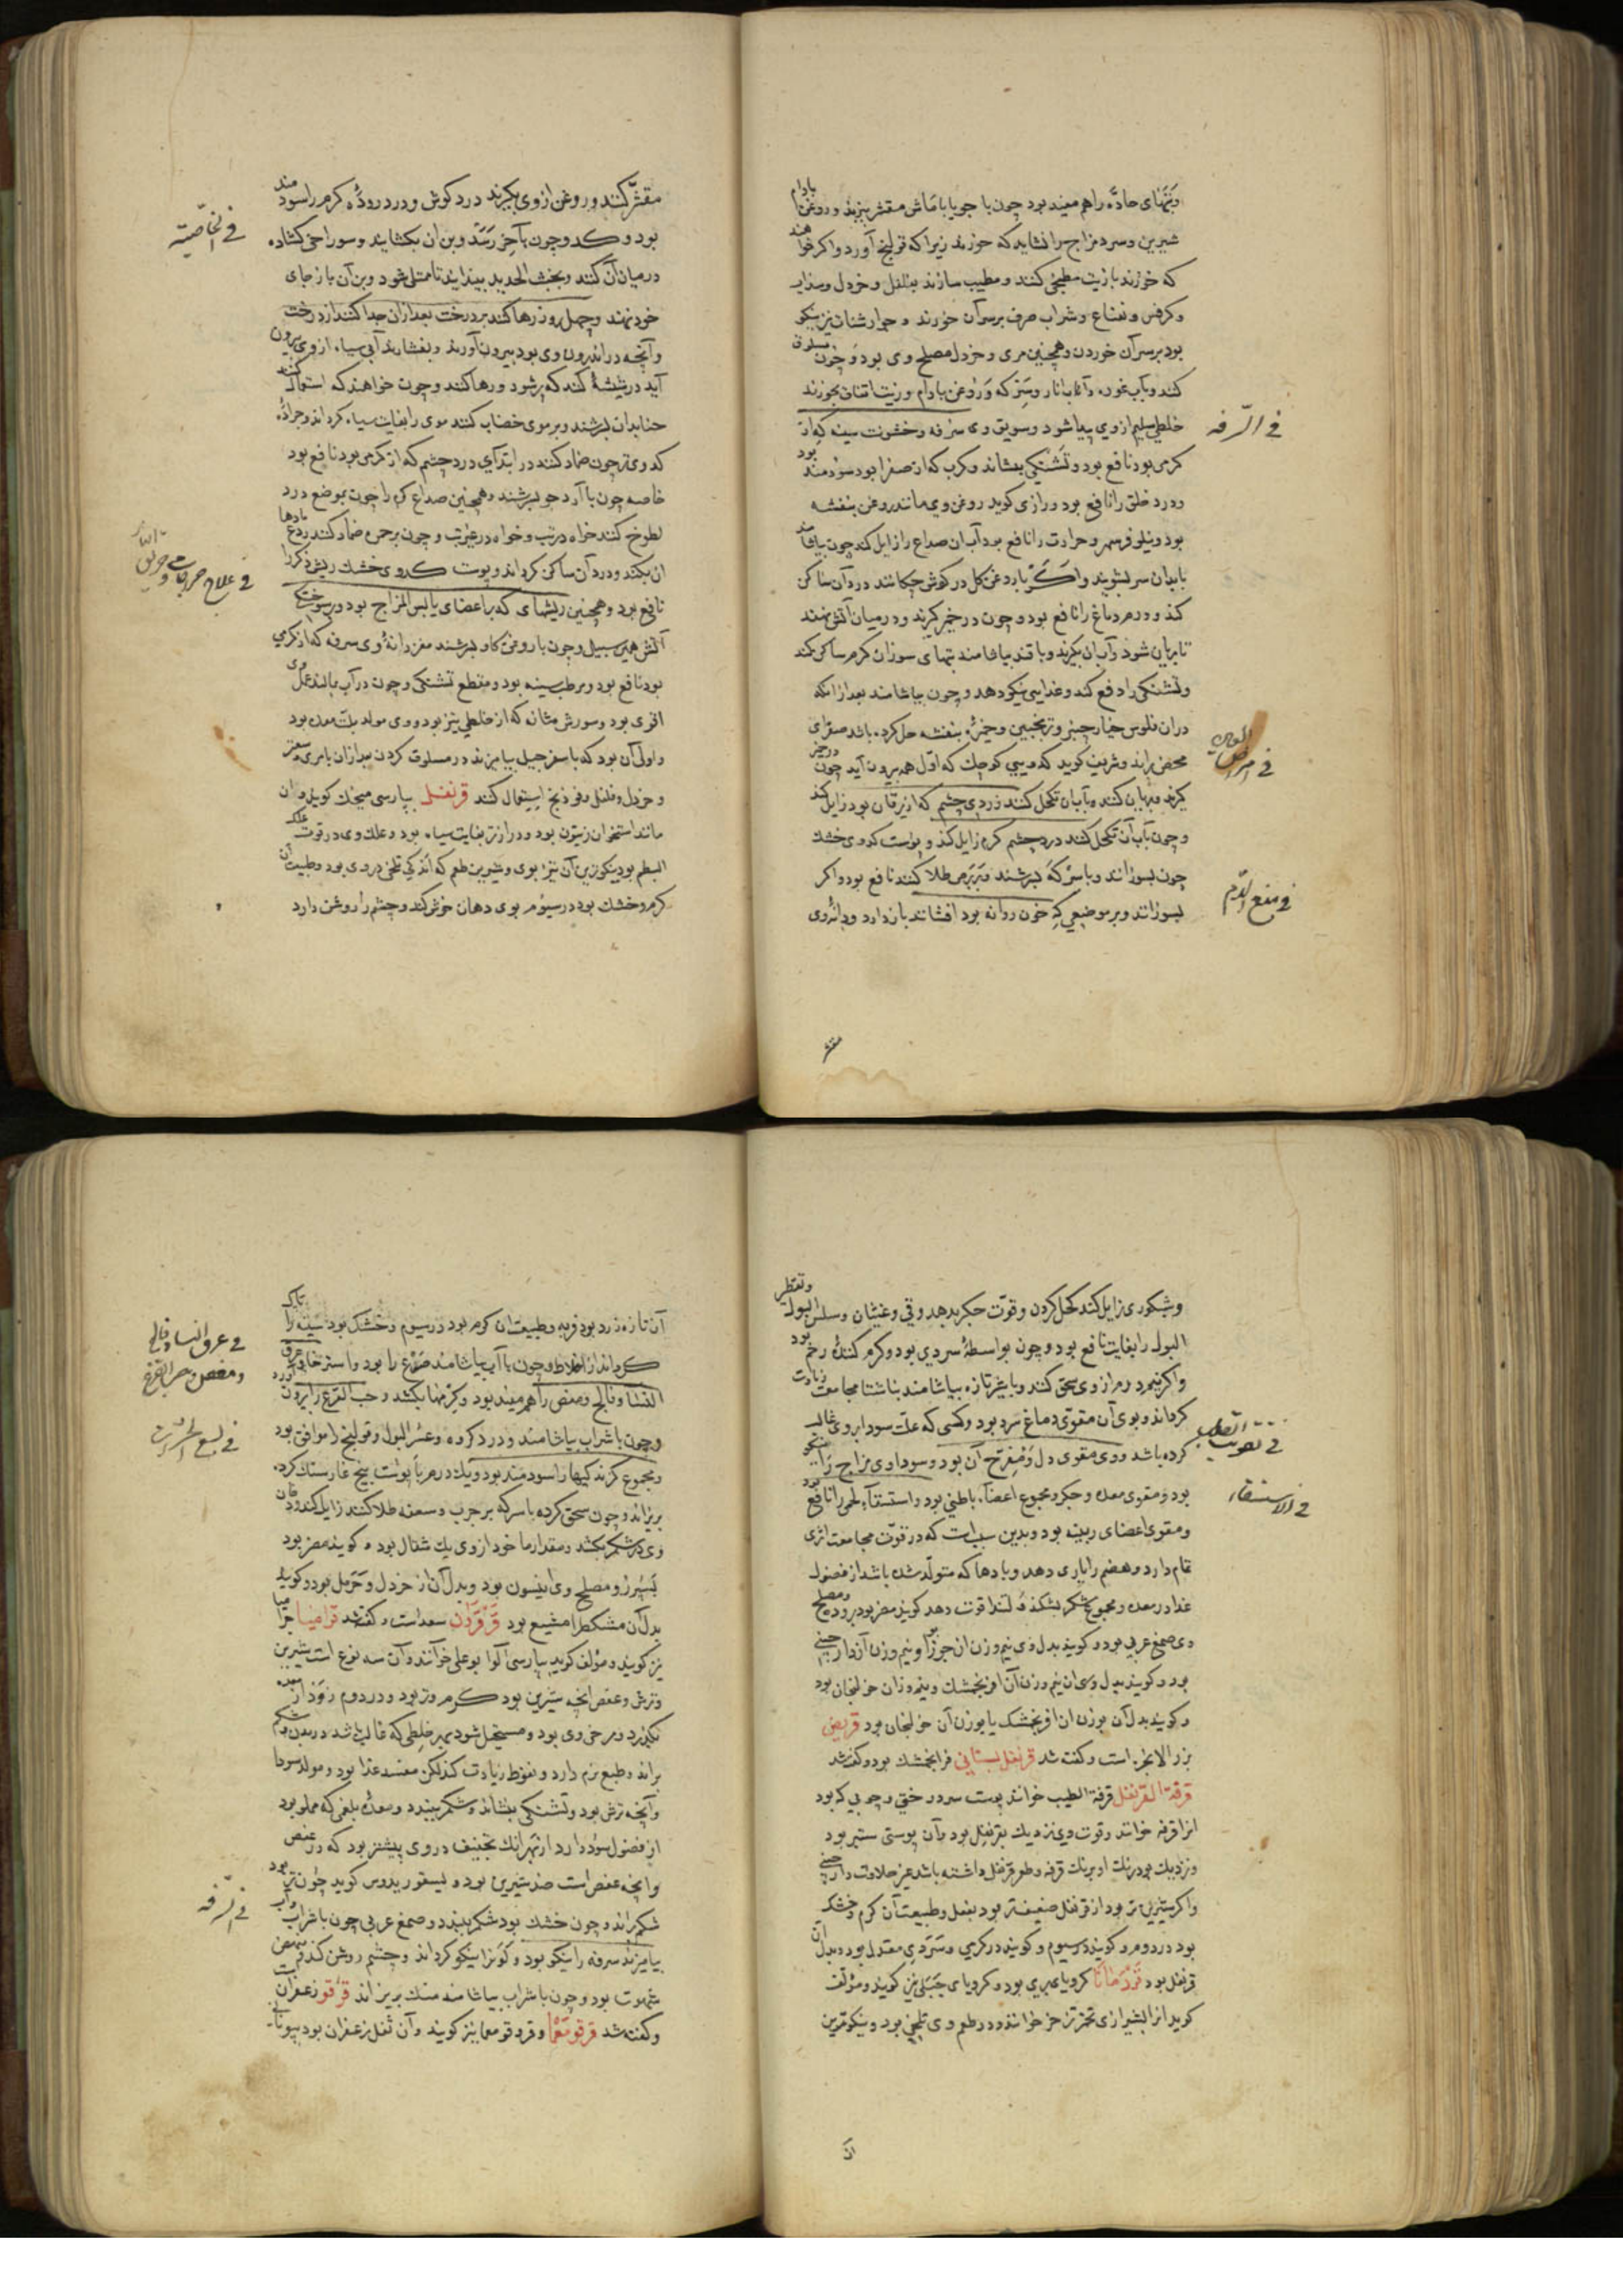 وتبهای حادّه را هم مفید بود چون با جو یا با ماش مقشر بپزند و روغن بادام
شیرین و سرد مزاج را نشاید که خورند زیرا که قولنج آورد و اگر خواهند
که خورند با زیت مطبخی کنند و مطیب سازند بفلفل و خردل و سذاب
و کرفس و نعناع و شراب صرف بر سر آن خورند و جوارشنات نیز نیکو
بود بر سر آن خوردن و همچنین مری و خردل مصلح وی بود و چون مسلوق
کنند و بآب غوره و آب انار و سرکه و روغن بادام و زیت انفاق بخورند
خلطی سلیم از وی پیدا شود و سویق وی سرفه و خشونت سینه که از
فی السرفه
گرمی بود نافع بود و تشنگی بنشاند و کرب که از صفرا بود سودمند بود
و درد حلق را نافع بود و رازی گوید روغن وی مانند روغن بنفشه
بود و نیلوفر سهر و حرارت را نافع بود آب آن صداع را زایل کند چون بیاشامند
یا بدان سر بشویند و اگر با روغن گل در گوش چکانند درد آن ساکن
کند و ورم دماغ را نافع بود و چون در خمیر گیرند و در میان آتش نهند
تا بریان شود و آب آن بگیرند و با قند بیاشامند تبهای سوزان گرم ساکن کند
و تشنگی را دفع کند و غذایی نیکو دهد و چون بیاشامند بعد از آنکه
در آن فلوس خیار چنبر و ترنجبین و خمیره بنفشه حل کرده باشند صفرای
محض براند و شریف گوید کدویی کوچک که اول هم بیرون آید چون در خمیر
فی امراض العین
گیرند و بریان کنند و بآب آن تکحل کنند زردی چشم که از یرقان بود زایل کند
و چون بآب آن تکحل کنند درد چشم گرم زایل کند و پوست کدوی خشک
چون بسوزانند و با سرکه بسرشند و بر برص طلا کنند نافع بود و اگر
فی منع الدم
بسوزانند و بر موضعی که خون روانه بود افشانند باز دارد و دانه وی
مقشر
مقشّر کنند و روغن از وی بگیرند درد گوش و درد روده گرم را سودمند
بود و کدو چون بآخر رسد و بن آن بگشایند و سوراخی گشاده
فی الخاصیة
در میان آن کنند و بخبث الحدید بیندایند تا ممتلی شود و بن آن باز جای
خود نهند و چهل روز رها کنند بر درخت بعد از آن جدا کنند از درخت
و آنچه در اندرون وی بود بیرون آورند و بفشارند آبی سیاه از وی بیرون
آید در شیشهٔ کنند که پر شود و رها کنند و چون خواهند که استعمال کنند
حنا بدان بسرشند و بر موی خضاب کنند موی را بغایت سیاه گرداند و جرادهٔ
کدوی تر چون ضماد کنند در ابتدای درد چشم که از گرمی بود نافع بود
خاصه چون با آرد جو بسرشند و همچنین صداع گرم را چون بموضع درد
لطوخ کنند خواه در تب و خواه در غیر تب و چون بر حمره ضماد کنند ردع مادها
آن بکند و درد آن ساکن گرداند و پوست کدوی خشک ریش ذکر را
نافع بود و همچنین ریشهای که بر اعضای یابس المزاج بود و بر سوختگی
آتش همین سبیل و چون با روغن گاو بسرشند مغز دانهٔ وی سرفه که از گرمی
بود نافع بود و مرطب سینه بود و مقطع تشنگی و چون در آب مالند عمل وی
اقوی بود و سوزش مثانه که از خلطی تیز بود و وی مولد بلّت معده بود
و اولی آن بود که با سفرجل بیامیزند در مسلوق کردن بعد از آن بامری و سعتر
و خردل و فلفل و فودنج استعمال کنند قرنفل بپارسی میخک گویند و آن
مانند استخوان زیتون بود و درازتر بغایت سیاه بود و علک وی در قوت علک
البطم بود نیکوترین آن تیز بوی و شیرین طعم که اندکی تلخی در وی بود و طبیعت آن
گرم و خشک بود در سیوم بوی دهان خوش کند و چشم را روشن دارد
و شبکوری زایل کند کحل کردن و قوّت جگر بدهد و قی و غثیان و سلس البول و تقطر
البول را بغایت نافع بود و چون بواسطهٔ سردی بود و گرم کنندهٔ رحم بود
و اگر نیم درم از وی سحق کنند و با شیر تازه بیاشامند بناشتا مجامعت زیادت
گرداند و بوی آن مقوّی دماغ سرد بود و کسی که علت سودا بر وی غالب
فی تقویت القلب
کرده باشد و وی مقوی دل و مفرّح آن بود و سوداوی مزاج را نیکو
بود و مقوی معده و جگر و مجموع اعضاء باطنی بود و استسقاء لحمی را نافع بود
فی الاستسقاء
و مقوی اعضای رییسه بود و بدین سبب است که در قوّت مجامعت اثری
تمام دارد و هضم را یاری دهد و بادها که متولّد شده باشد از فضول
غذا در معده و مجموع شکم بشکند و لثه را قوت دهد گویند مضر بود بروده و مصلح
وی صمغ عربی بود و گویند بدل وی نیم وزن آن جوز بوا و نیم وزن آن دارچینی
بود و گویند بدل وی آن نیم وزن آن افرنجمشک و نیم وزن آن خولنجان بود
و گویند بدل آن بوزن آن افرنجمشک یا بوزن آن خولنجان بود قریض
بزر الانجره است و گفته شد قرنفل بستانی فرنجمشک بود و گفته شد
قرفة القرنفل قرفة الطیب خوانند پوست سر درختی و چوبی که بود
آنرا قرفه خوانند و قوت وی نزدیک بقرنفل بود و آن پوستی ستبر بود
و نزدیک بود رنگ او برنگ قرفه و طعم قرنفل داشته باشد غیر حلاوت دارچینی
و اگر شیرین تر بود از قرنفل ضعیفتر بود بفعل و طبیعت آن گرم و خشک
بود در دوم و گویند در سیوم و گویند در گرمی و سردی معتدل بود و بدل آن
قرنفل بود قردمانا کرویای بری بود و کرویای جبلی نیز گویند و مؤلف
گوید آنرا بشیرازی تخم ترخر خوانند و در طعم وی تلخی بود و نیکوترین
آن
آن تازه زرد بود فربه و طبیعت آن گرم بود در سیوم و خشک بود سینه را پاک
گرداند از اخلاط و چون با آب بیاشامند صرع را بود و استرخا و عرق
فی عرق النسا و فالج
و مغص و حب القرع
النسا و فالج و مغص را هم مفید بود و کرمها بکشد و حب القرع را بیرون آورد
و چون با شراب بیاشامند درد گرده و عسر البول و قولنج را موافق بود
فی لسع الحشرات
و مجموع گزندگیها را سودمند بود و یکدرم با پوست بیخ غار سنگ گرده
بریزاند و چون سحق کرده با سرکه بر جرب و سعفه طلا کنند زایل کند و دخان
وی در شکم بکشد و مقدار ماخوذ از وی یک مثقال بود و گویند مضر بود
بسپرز و مصلح وی انیسون بود و بدل آن از خردل و حرمل بود و گویند
بدل آن مشکطرامشیع بود قرقردن سعد است و گفته شد قراصیا جراسیا
نیز گویند و مؤلف گوید بپارسی آلوا بو علی خوانند و آن سه نوع است شیرین
و ترش و عفص آنچه شیرین بود گرم و تر بود در دوم زود از معده
بگذرد و مرخی وی بود و مستحیل شود بهر خلطی که غالب باشد در بدن و شکم
براند و طبع نرم دارد و نعوظ زیادت کند لکن مفسد غذا بود و مولد سودا
و آنچه ترش بود تشنگی بنشاند و شکم ببندد و معده بلغمی که مملو بود
از فضول سود دارد از بهر آنک تجفیف در وی بیشتر بود که در عفص
و آنچه عفص است ضد شیرین بود و دیسقوریدوس گوید چون تر بود
فی السرفه
شکم براند و چون خشک بود شکم ببندد و صمغ عربی چون با شراب و آب
بیامیزند سرفه را نیکو بود و گونه را نیکو گرداند و چشم روشن کند و منهض
شهوت بود و چون با شراب بیاشامند سنگ بریزاند قرقو زعفران است
و گفته شد قرقومغما و قردقومعما نیز گویند و آن ثفل زعفران بود بیونانی